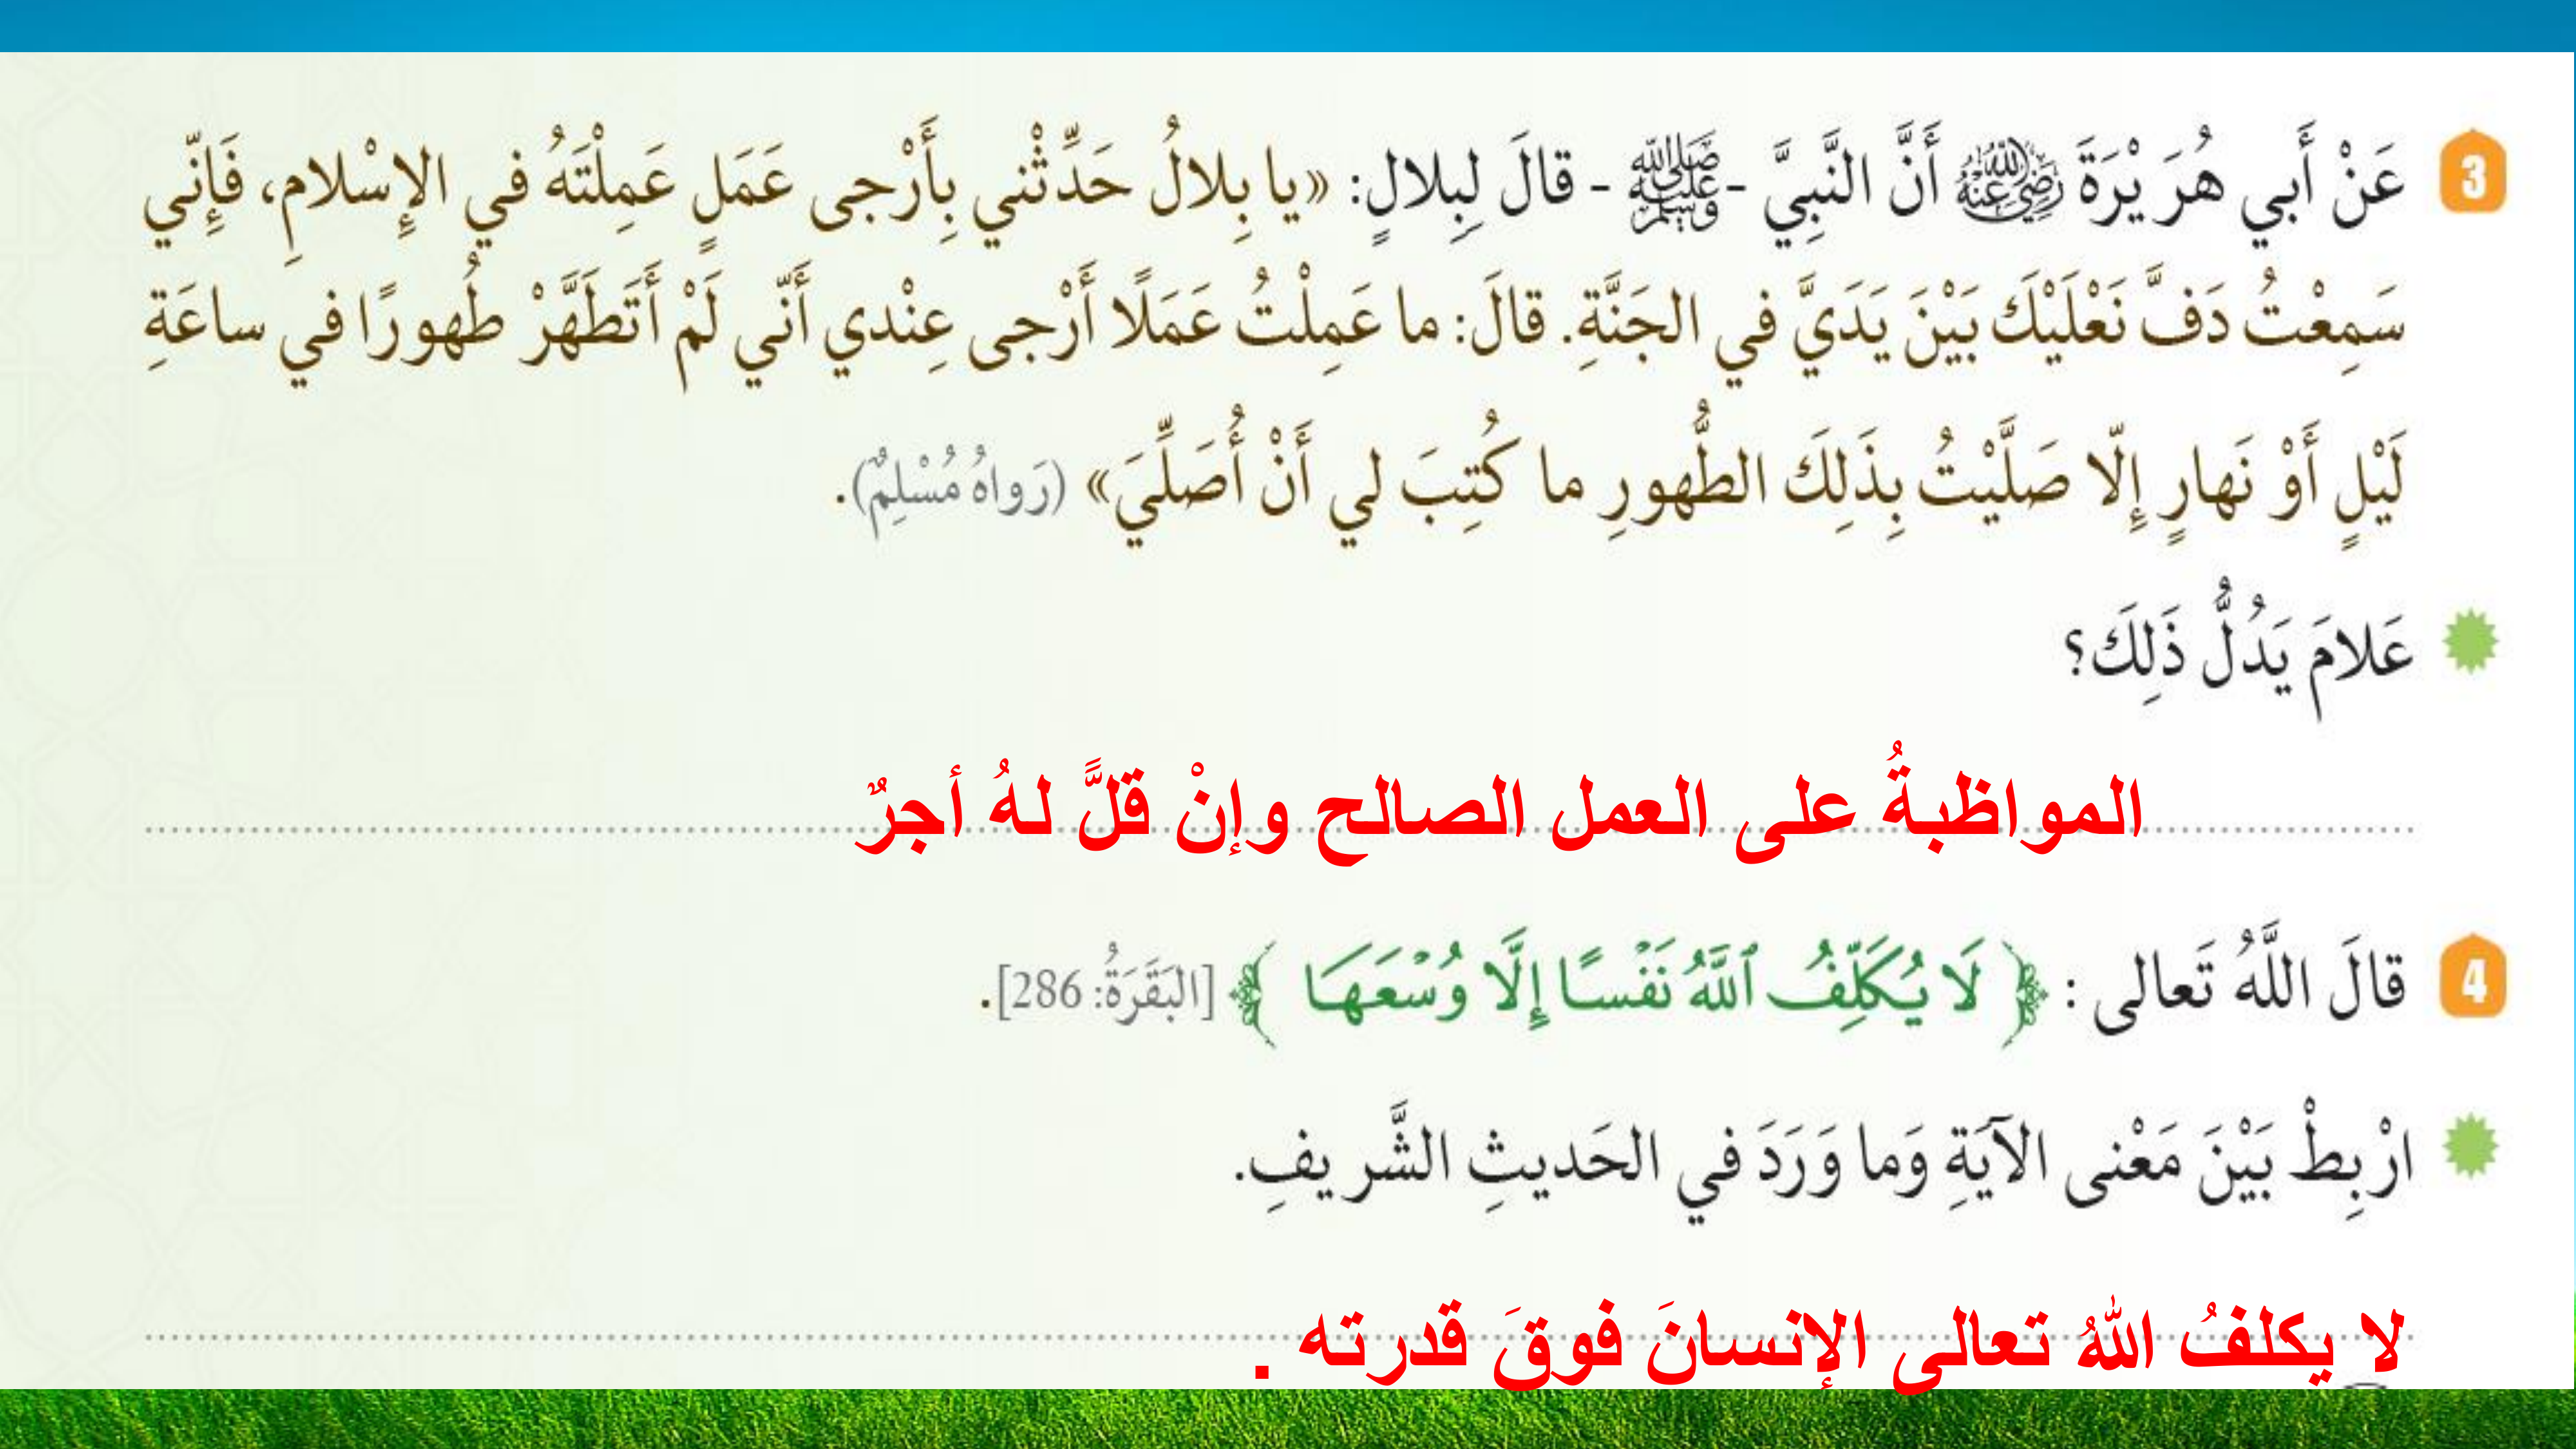 3 عَنْ أَبي هُرَيْرَةَ رضي الله عنه أَنَّ النَّبِيَّ -ﷺ- قالَ لِبِلالٍ: «يا بِلالُ حَدِّثْني بِأَرْجى عَمَلٍ عَمِلْتَهُ في الإِسْلامِ، فَإِنّي
سَمِعْتُ دَفَّ نَعْلَيْكَ بَيْنَ يَدَيَّ في الجَنَّةِ. قالَ: ما عَمِلْتُ عَمَلًا أَرْجى عِنْدي أَنّي لَمْ أَتَطَهَّرْ طُهورًا في ساعَةِ
لَيْلٍ أَوْ نَهارٍ إِلّا صَلَّيْتُ بِذَلِكَ الطُّهورِ ما كُتِبَ لي أَنْ أُصَلِّيَ» (رَواهُ مُسْلِمٌ).
عَلامَ يَدُلُّ ذَلِكَ؟
المواظبةُ على العمل الصالح وإنْ قلَّ لهُ أجرٌ
4 قالَ اللَّهُ تَعالى : ﴿ لَا يُكَلِّفُ ٱللَّهُ نَفْسًا إِلَّا وُسْعَهَا ﴾ [البَقَرَةُ: 286].
ارْبِطْ بَيْنَ مَعْنى الآيَةِ وَما وَرَدَ في الحَديثِ الشَّريفِ.
لا يكلفُ اللهُ تعالى الإنسانَ فوقَ قدرته .